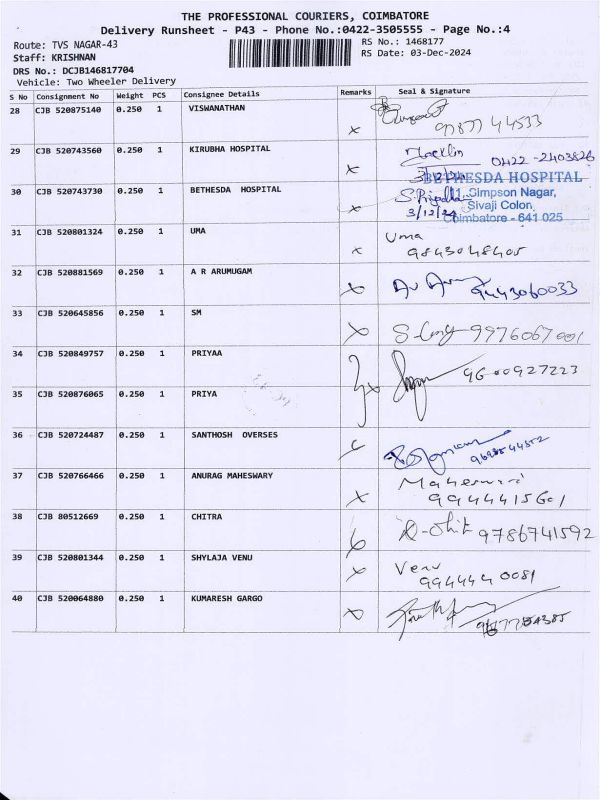 THE PROFESSIONAL COURIERS, COIMBATORE
Delivery Runsheet - P43 - Phone No.:0422-3505555 - Page No.:4
Route: TVS NAGAR-43 RS No.: 1468177
Staff: KRISHNAN RS Date: 03-Dec-2024
DRS No.: DCJB146817704
Vehicle: Two Wheeler Delivery
S No Consignment No Weight PCS Consignee Details Remarks Seal & Signature
28 CJB 520875140 0.250 1 VISWANATHAN
29 CJB 520743560 0.250 1 KIRUBHA HOSPITAL 0422-2403826
30 CJB 520743730 0.250 1 BETHESDA HOSPITAL
BETHESDA HOSPITAL
11, Simpson Nagar,
Sivaji Colon
3/12/24 Coimbatore - 641 025
31 CJB 520801324 0.250 1 UMA Uma
9843048405
32 CJB 520881569 0.250 1 A R ARUMUGAM 9443060033
33 CJB 520645856 0.250 1 SM 9976067001
34 CJB 520849757 0.250 1 PRIYAA 9600927223
35 CJB 520876065 1 0.250 PRIYA
36 CJB 520724487 0.250 1 SANTHOSH OVERSES
37 CJB 520766466 0.250 1 ANURAG MAHESWARY
9944415601
38 CJB 80512669 0.250 1 CHITRA 9786741592
39 CJB 520801344 0.250 1 SHYLAJA VENU Venu
9944440081
40 CJB 520064880 0.250 1 KUMARESH GARGO